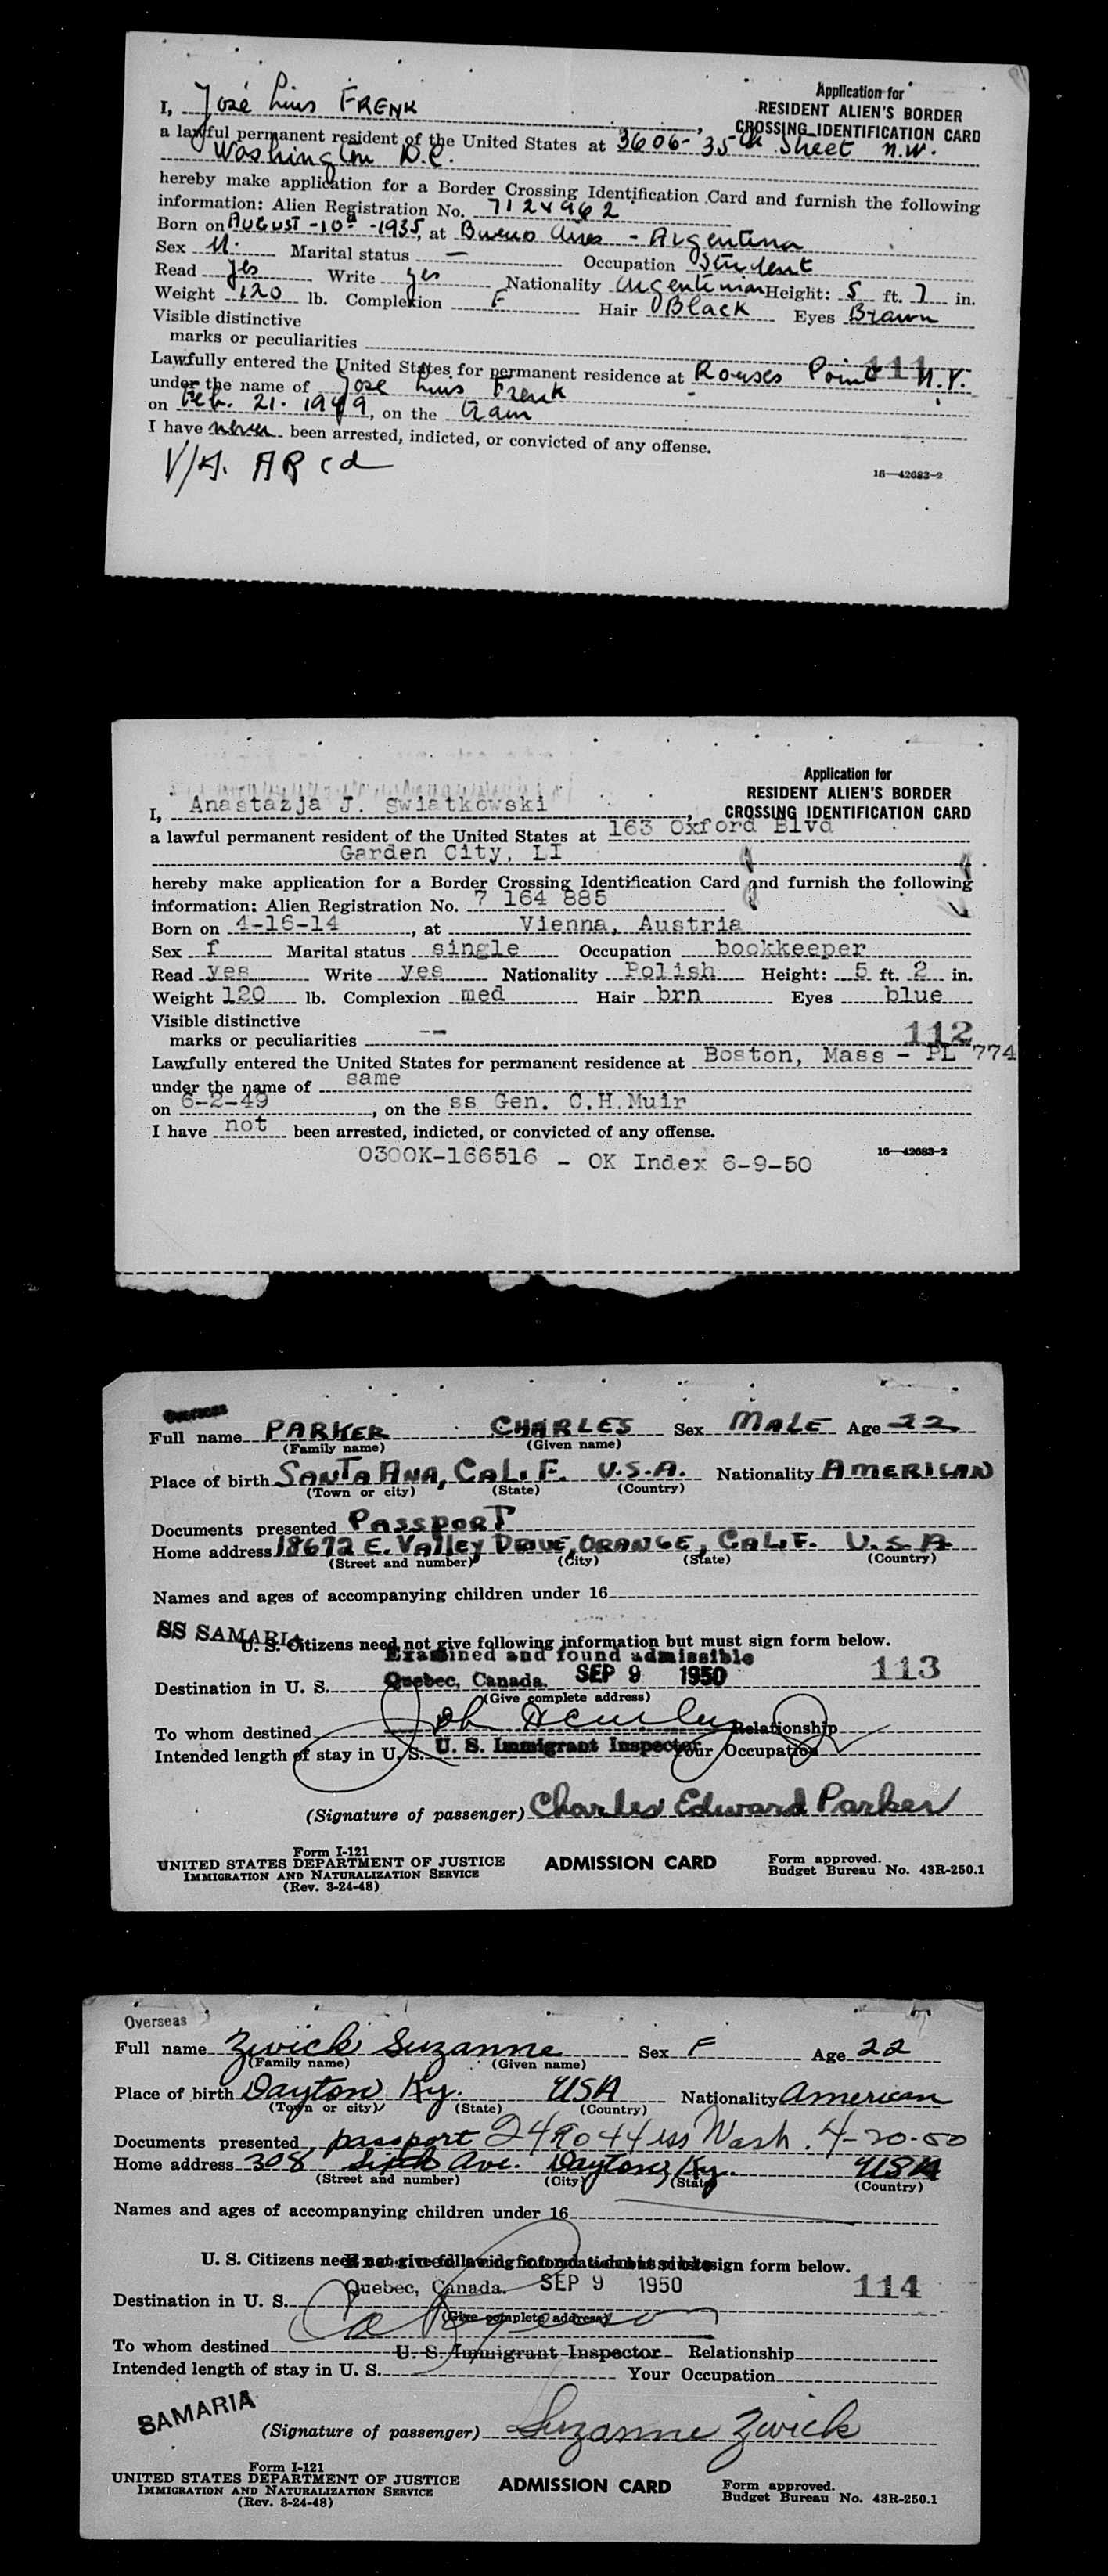 Application for
RESIDENT ALIEN'S BORDER
CROSSING IDENTIFICATION CARD
I, José Luis FRENK
a lawful permanent resident of the United States at 3606-35th Street N.W.
Washington D.C.
hereby make application for a Border Crossing Identification Card and furnish the following
information: Alien Registration No. 7124962
Born on AUGUST-10-1935, at Buenos Aires - Argentina
Sex M. Marital status — Occupation Student
Read yes Write yes Nationality Argentinian Height: 5 ft. 7 in.
Weight 120 lb. Complexion F Hair Black Eyes Brown
Visible distinctive
marks or peculiarities
111
Lawfully entered the United States for permanent residence at Rouses Point N.Y.
under the name of José Luis Frenk
on Feb. 21. 1949, on the train
I have never been arrested, indicted, or convicted of any offense.
16—42683-2
Application for
RESIDENT ALIEN'S BORDER
CROSSING IDENTIFICATION CARD
I, Anastazja J. Swiatkowski
a lawful permanent resident of the United States at 163 Oxford Blvd
Garden City, LI
hereby make application for a Border Crossing Identification Card and furnish the following
information: Alien Registration No. 7 164 885
Born on 4-16-14, at Vienna, Austria
Sex f Marital status single Occupation bookkeeper
Read yes Write yes Nationality Polish Height: 5 ft. 2 in.
Weight 120 lb. Complexion med Hair brn Eyes blue
Visible distinctive
marks or peculiarities --
112
Lawfully entered the United States for permanent residence at Boston, Mass - PL 774
under the name of same
on 6-2-49, on the ss Gen. C.H.Muir
I have not been arrested, indicted, or convicted of any offense.
0300K-166516 - OK Index 6-9-50
16—42683-2
Overseas
Full name PARKER CHARLES Sex MALE Age 22
(Family name) (Given name)
Place of birth SANTA ANA, CALIF. U.S.A. Nationality AMERICAN
(Town or city) (State) (Country)
Documents presented PASSPORT
Home address 18672 E. Valley DRIVE, ORANGE, CALIF. U.S.A.
(Street and number) (City) (State) (Country)
Names and ages of accompanying children under 16
SS SAMARIA
U. S. Citizens need not give following information but must sign form below.
Examined and found admissible
Quebec, Canada. SEP 9 1950
113
Destination in U. S.
(Give complete address)
To whom destined Relationship
Intended length of stay in U. S. U. S. Immigrant Inspector Your Occupation
(Signature of passenger) Charles Edward Parker
Form I-121
UNITED STATES DEPARTMENT OF JUSTICE
IMMIGRATION AND NATURALIZATION SERVICE
(Rev. 3-24-48)
ADMISSION CARD
Form approved.
Budget Bureau No. 43R-250.1
Overseas
Full name Zwick Suzanne Sex F Age 22
(Family name) (Given name)
Place of birth Dayton Ky. USA Nationality American
(Town or city) (State) (Country)
Documents presented passport 249044 iss Wash. 4-20-50
Home address 308 Sixth Ave. Dayton, Ky. USA
(Street and number) (City) (State) (Country)
Names and ages of accompanying children under 16
U. S. Citizens need not give following information but must sign form below.
Quebec, Canada. SEP 9 1950
114
Destination in U. S.
(Give complete address)
To whom destined U. S. Immigrant Inspector Relationship
Intended length of stay in U. S. Your Occupation
SAMARIA
(Signature of passenger) Suzanne Zwick
Form I-121
UNITED STATES DEPARTMENT OF JUSTICE
IMMIGRATION AND NATURALIZATION SERVICE
(Rev. 3-24-48)
ADMISSION CARD
Form approved.
Budget Bureau No. 43R-250.1